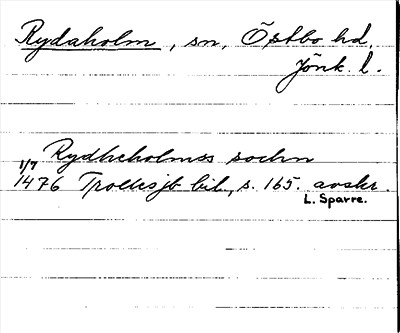 Rydaholm, sn, Östbo hd,
Jönk. l.
Rydhcholmss sochn
1/7
1476 Trollesjb bil, s. 165. avskr.
L. Sparre.